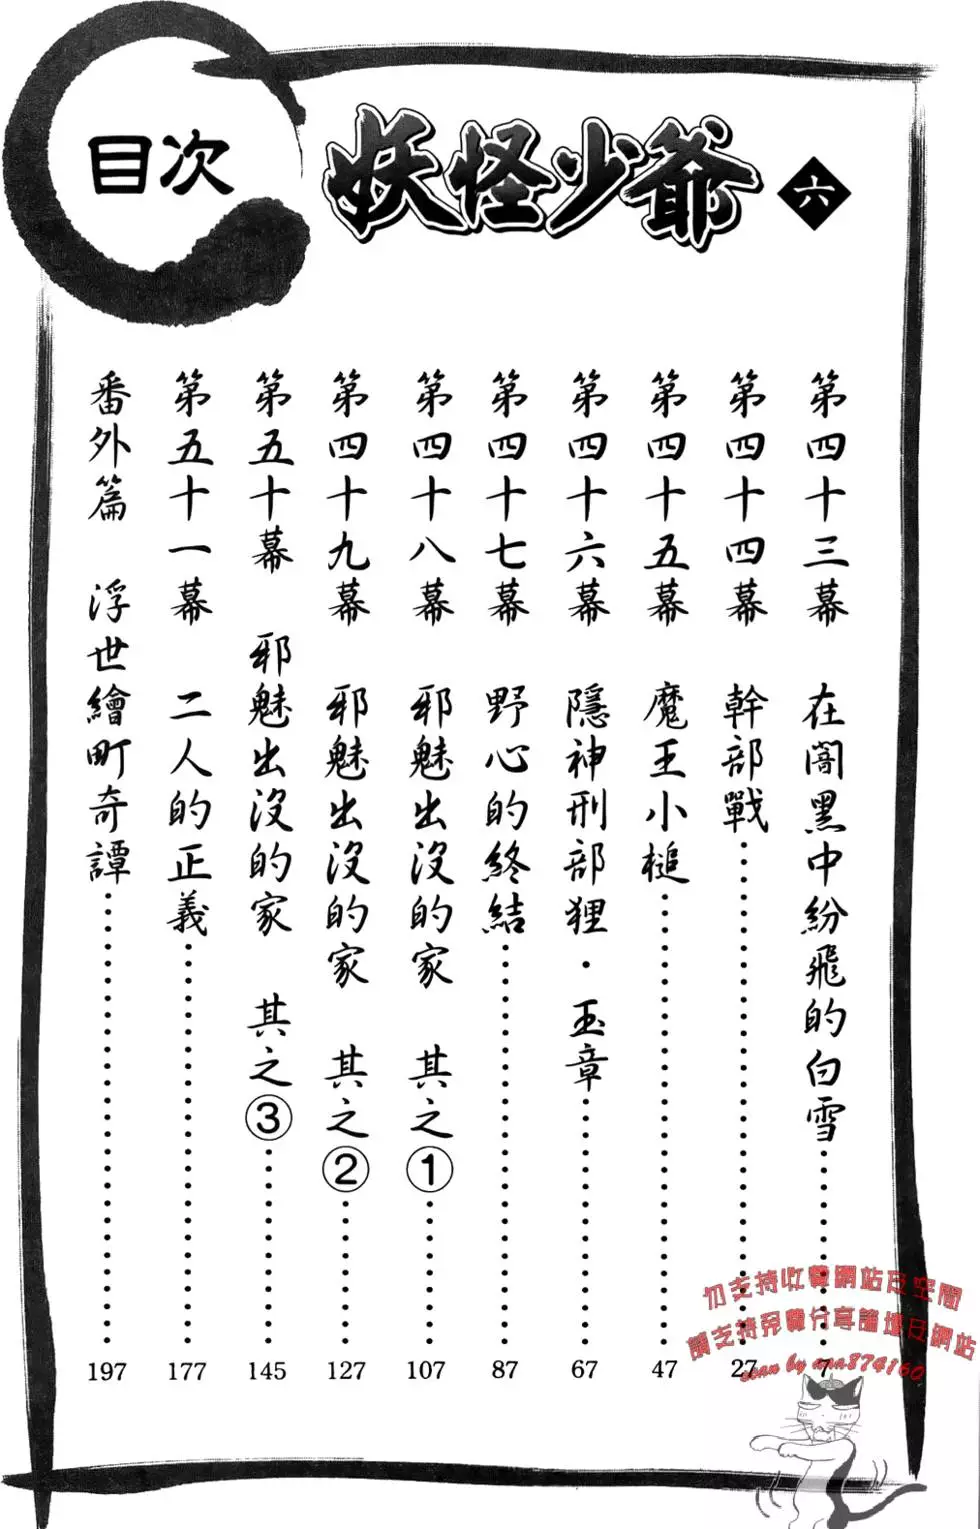 目次
妖怪少爺 六
第四十三幕 在闇黑中紛飛的白雪……7
第四十四幕 幹部戰……27
第四十五幕 魔王小槌……47
第四十六幕 隱神刑部狸・玉章……67
第四十七幕 野心的終結……87
第四十八幕 邪魅出沒的家 其之①……107
第四十九幕 邪魅出沒的家 其之②……127
第五十幕 邪魅出沒的家 其之③……145
第五十一幕 二人的正義……177
番外篇 浮世繪町奇譚……197
勿支持收費網站及空間
請支持免費分享論壇及網站
scan by ana874160